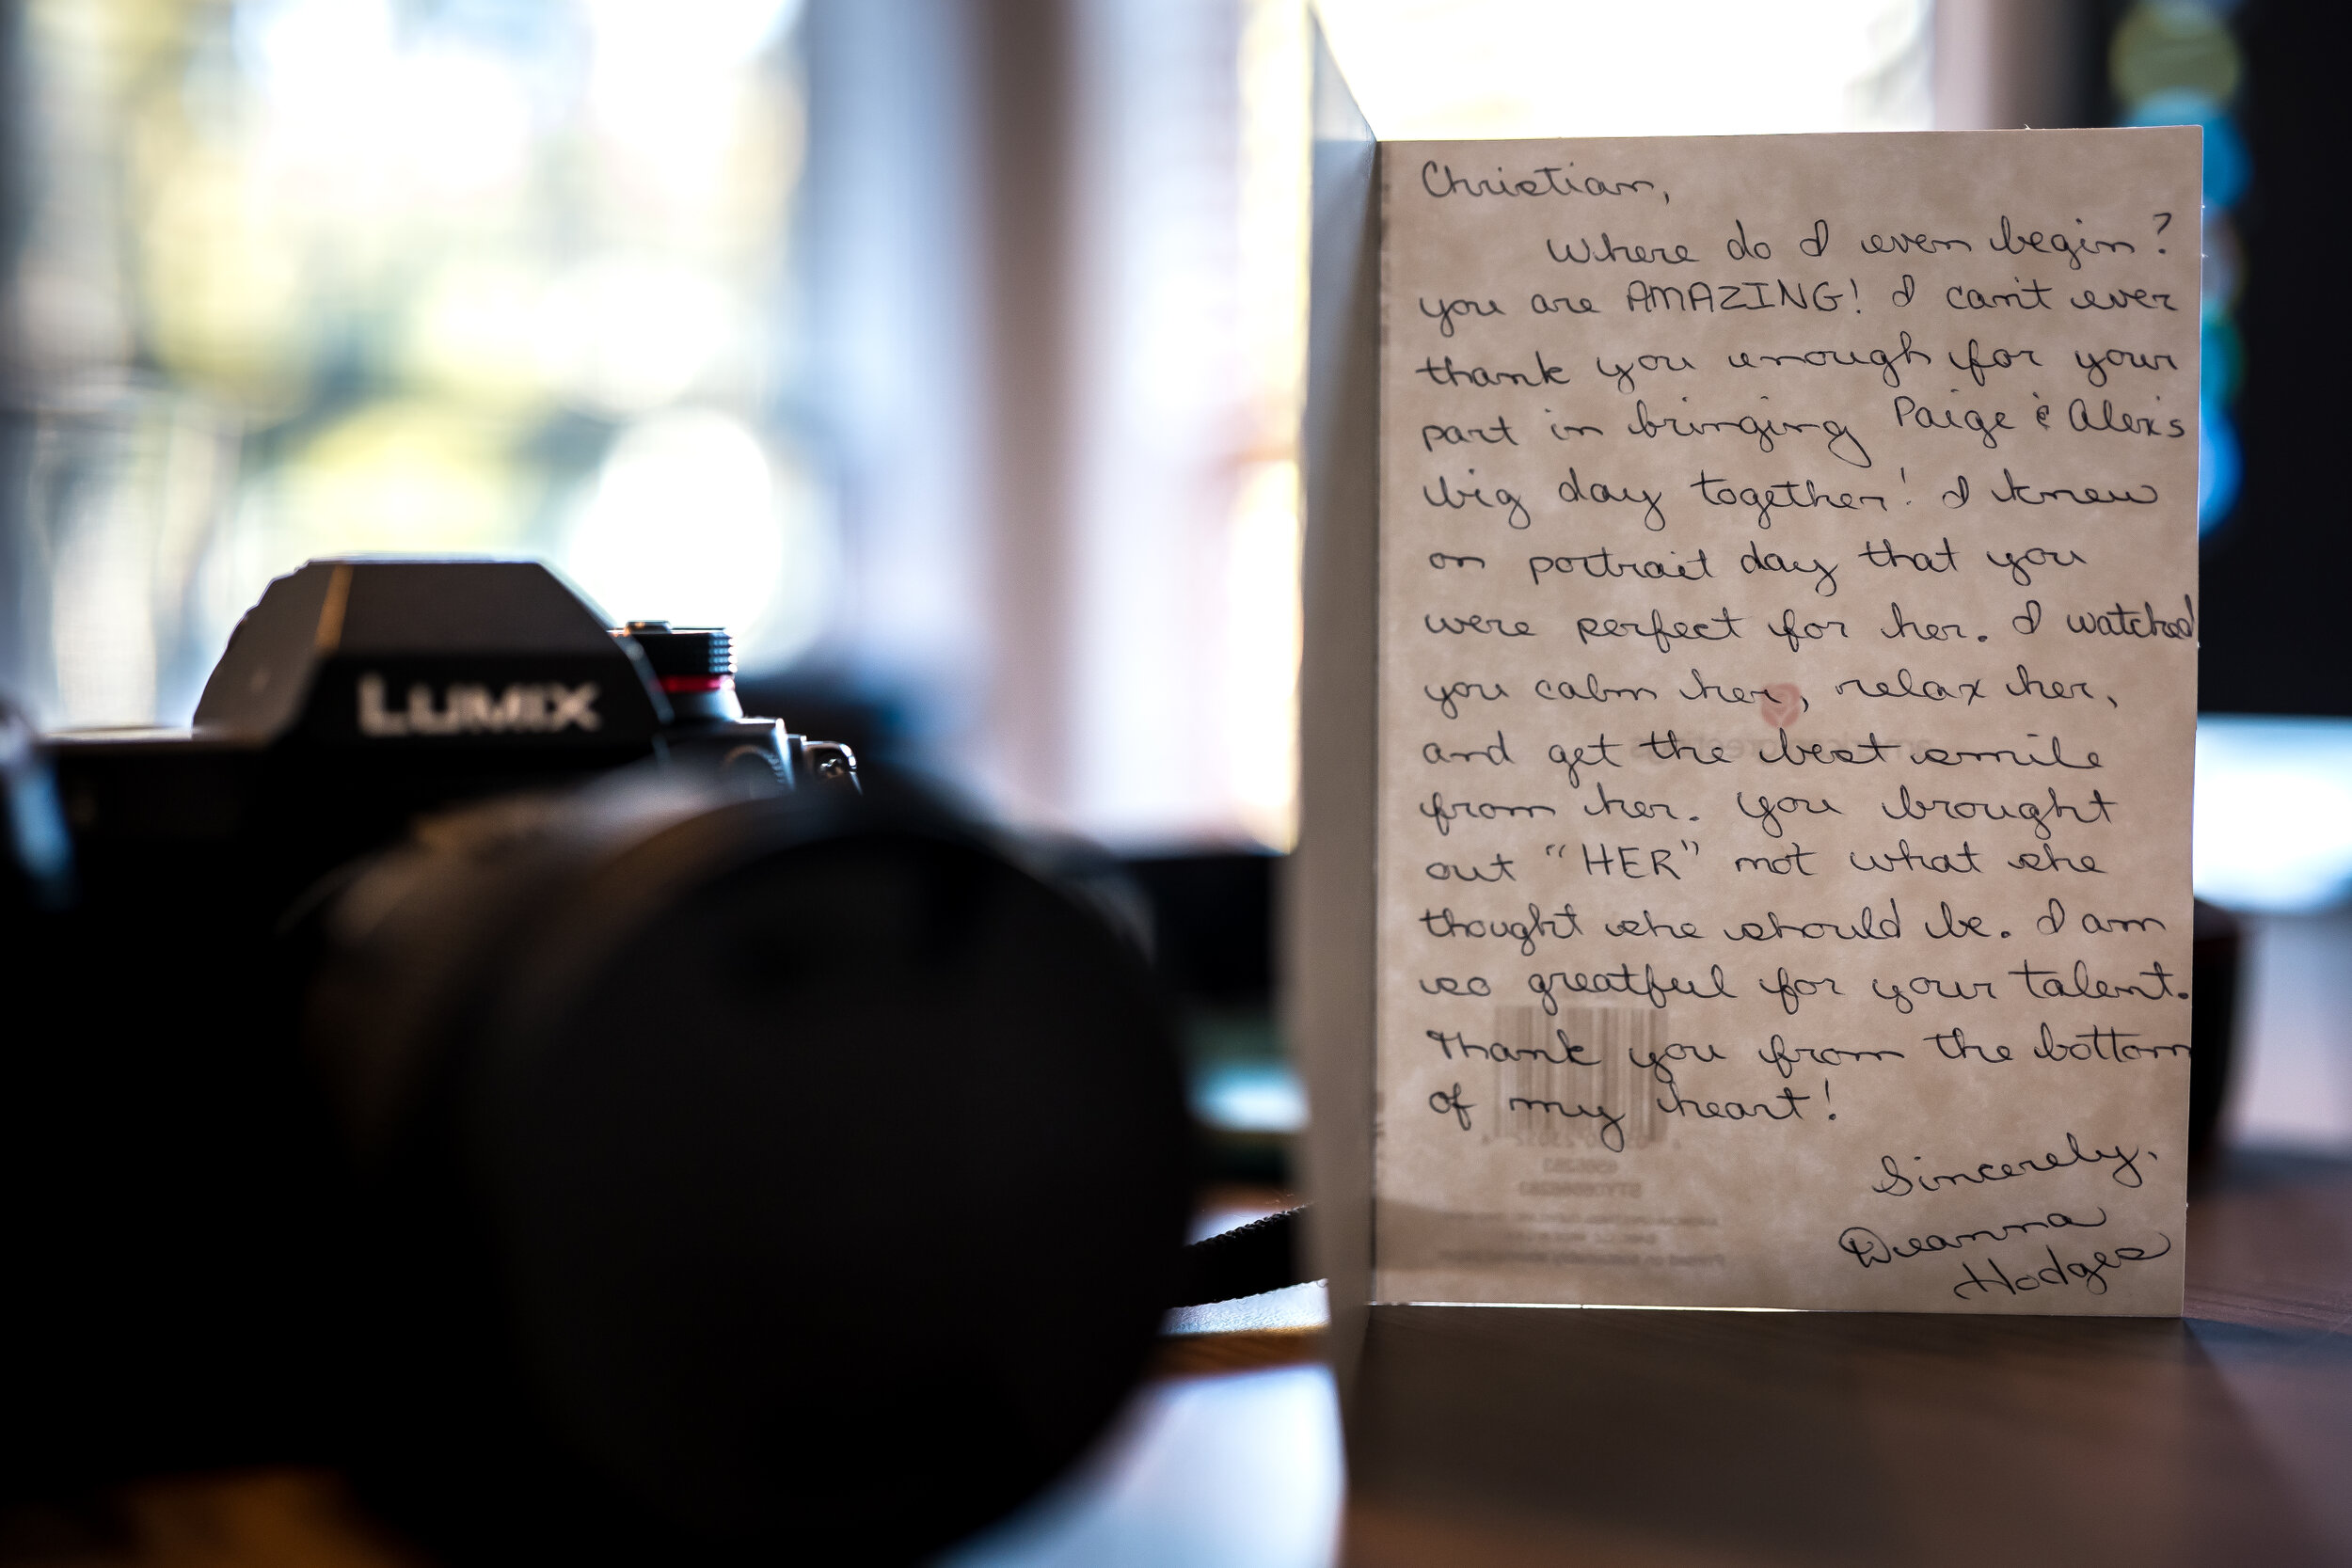 LUMIX
Christian,
Where do I even begin?
you are AMAZING! I can't ever
thank you enough for your
part in bringing Paige & Alex's
big day together! I knew
on portrait day that you
were perfect for her. I watched
you calm her, relax her,
and get the best smile
from her. You brought
out "HER" not what she
thought she should be. I am
so greatful for your talent.
Thank you from the bottom
of my heart!
Sincerely,
Deanna
Hodges